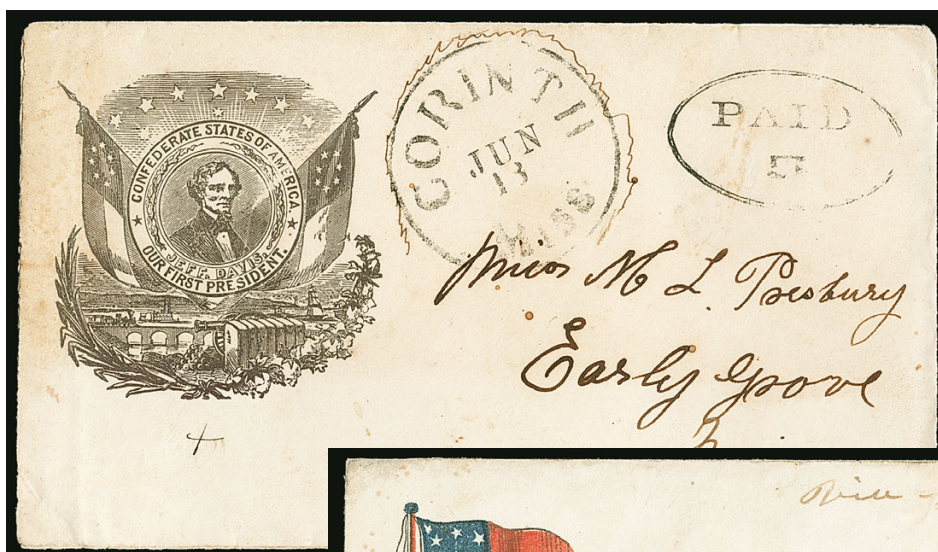 CONFEDERATE STATES OF AMERICA.
JEFF. DAVIS.
OUR FIRST PRESIDENT.
CORINTH
JUN
13
MISS
PAID
5
Miss M L Presbury
Early Grove